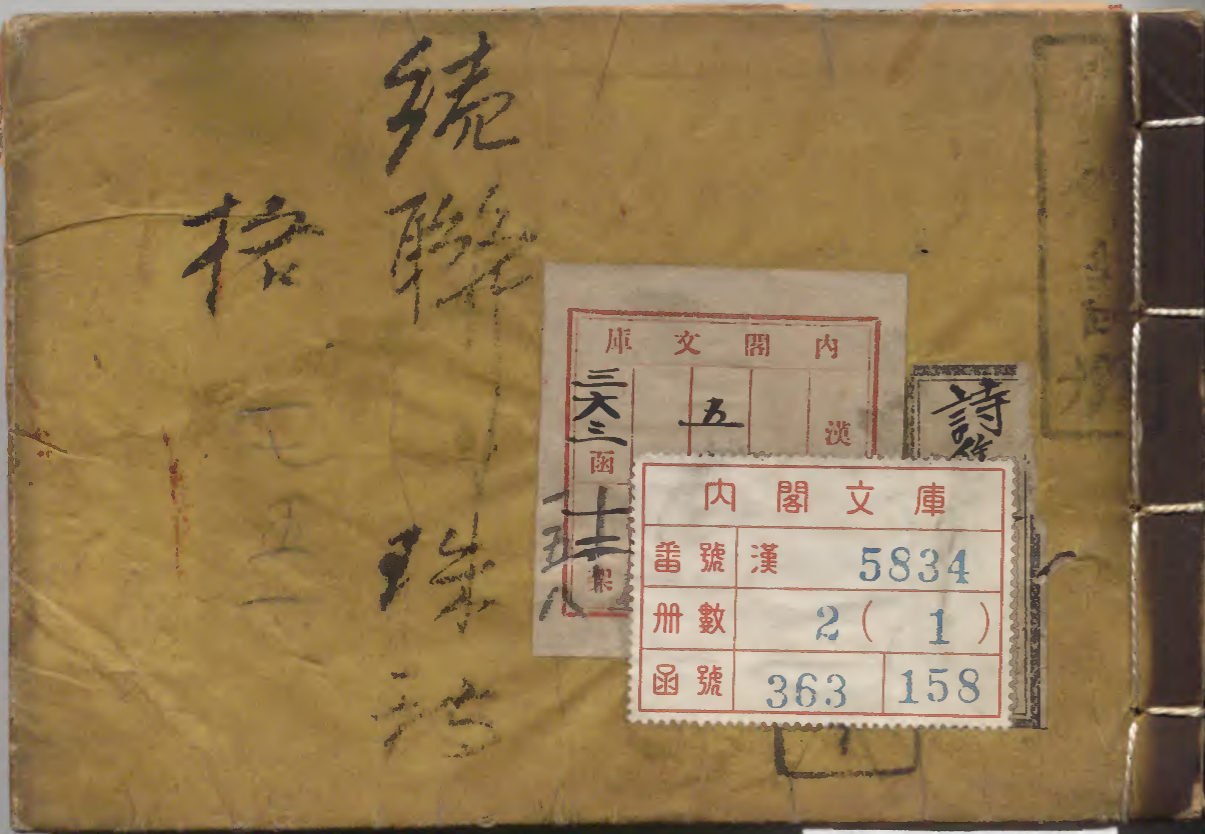 続聯珠詩
格
詩
内閣文庫
漢
五
三六三函
内閣文庫
番號 漢 5834
册數 2 ( 1 )
函號 363 158